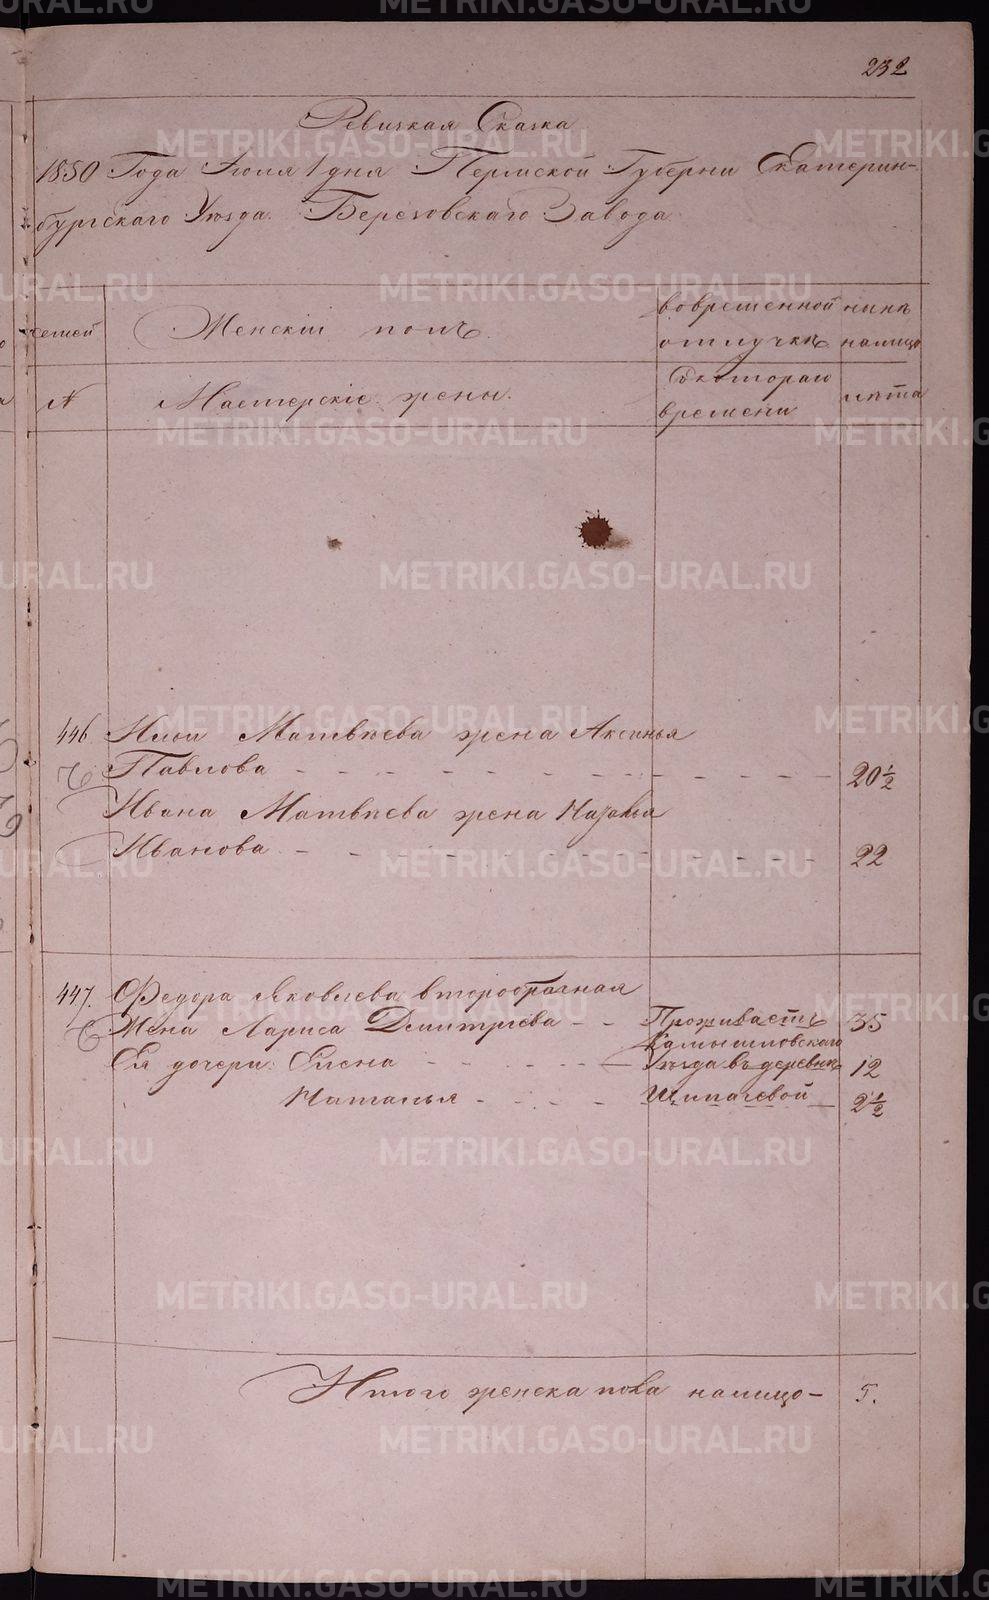 232
Ревизкая Сказка
1850 Года Июля 1 дня Пермской Губерни Екатерин-
бургскаго Уезда. Березовскаго Завода
семей
Женскій полъ.
во временной
отлучкѣ
нинѣ
налицо
№
Мастерскіе жены.
Съ котораго
времени
лѣта
446 Ильи Матвѣева жена Аксинья
Павлова - - - - - - - - - - 20½
Ивана Матвѣева жена Наталья
Иванова - - - - - - - - - - 22
447. Федора Яковлева второбрачная
жена Лариса Дмитріева - - Проживаетъ 35
Камышловскаго
Ея дочери: Елена - - - - - Уѣзда въ деревнѣ 12
Наталья - - - - Шипачевой 2½
Итого женска пола налицо - 5.
METRIKI.GASO-URAL.RU